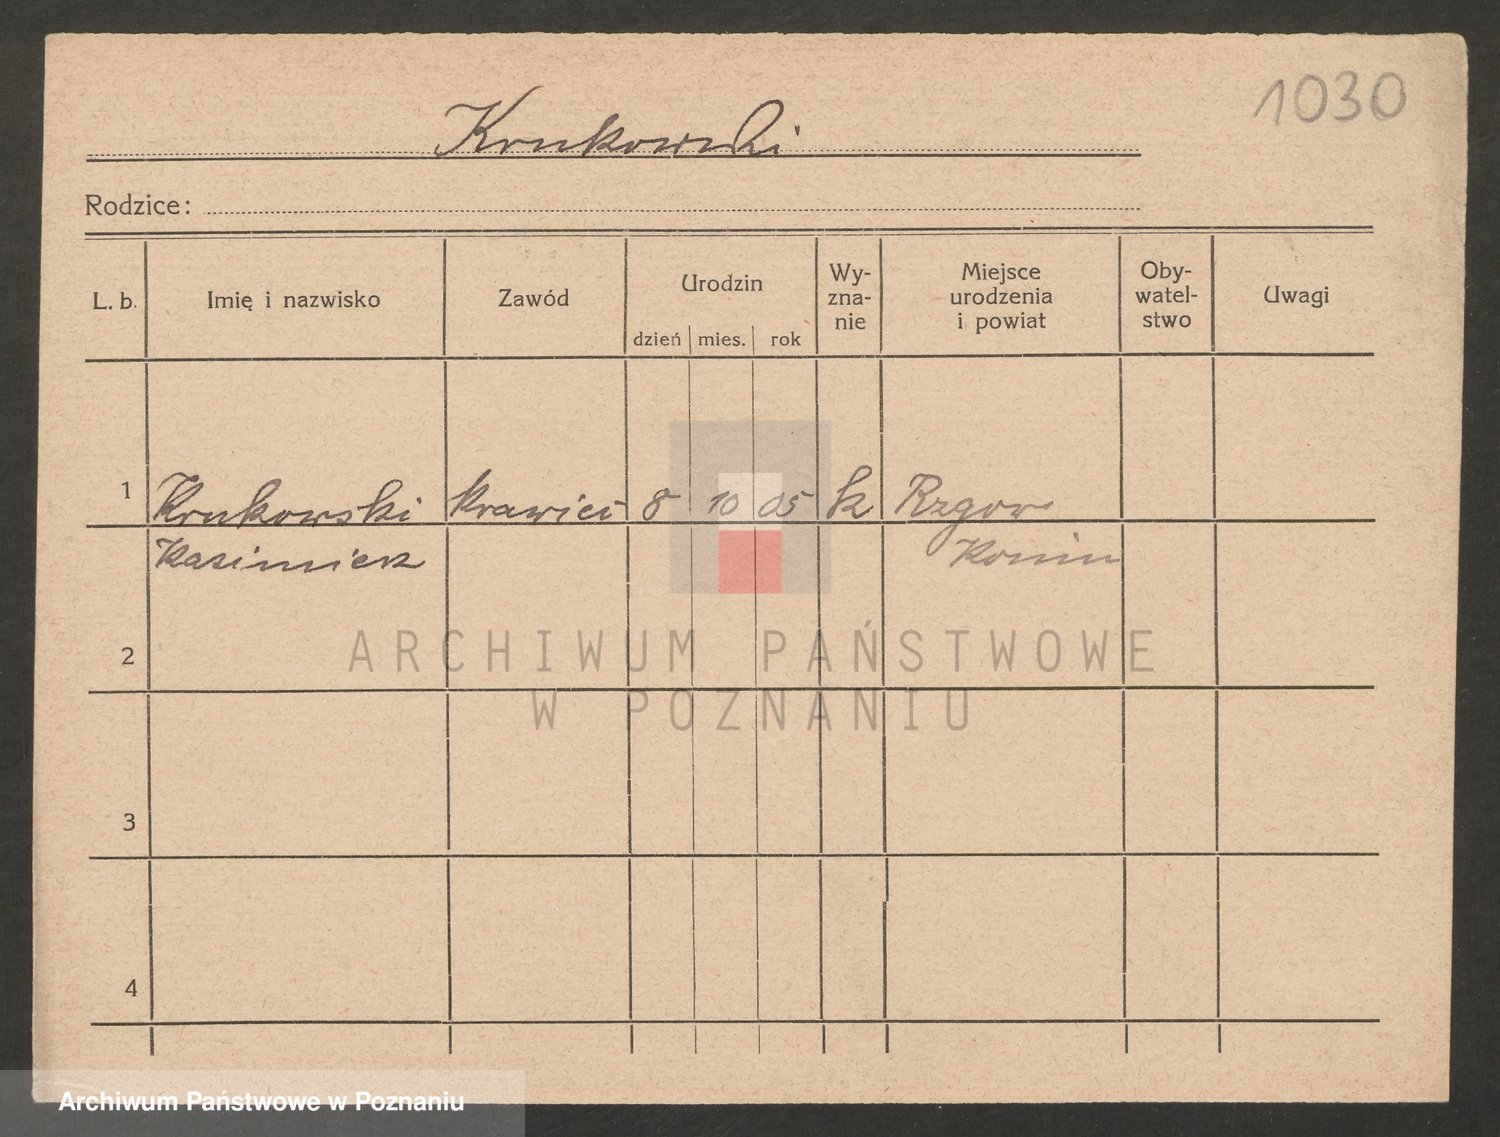 1030
Krukowski
Rodzice:
L. b.
Imię i nazwisko
Zawód
Urodzin
dzień
mies.
rok
Wy-
zna-
nie
Miejsce
urodzenia
i powiat
Oby-
watel-
stwo
Uwagi
1 Krukowski krawiec 8 10 05 k Rzgow
Kazimierz Konin
2
ARCHIWUM PAŃSTWOWE
W POZNANIU
3
4
Archiwum Państwowe w Poznaniu